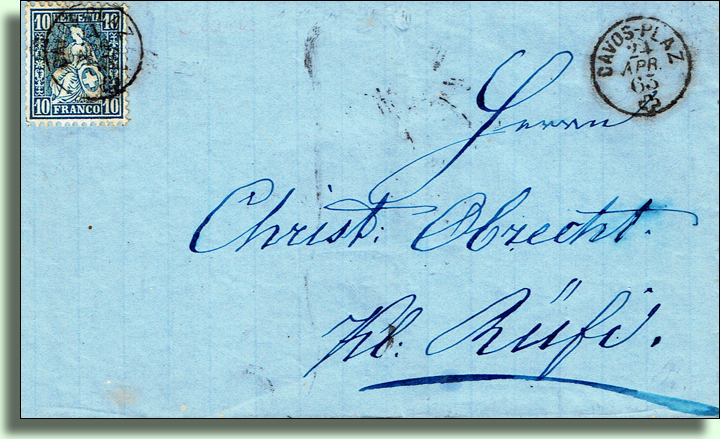 10 HELVETIA 10
10 FRANCO 10
DAVOS-PLAZ
24
APR.
63
Herrn
Christ: Obrecht.
Kl: Rüfi.